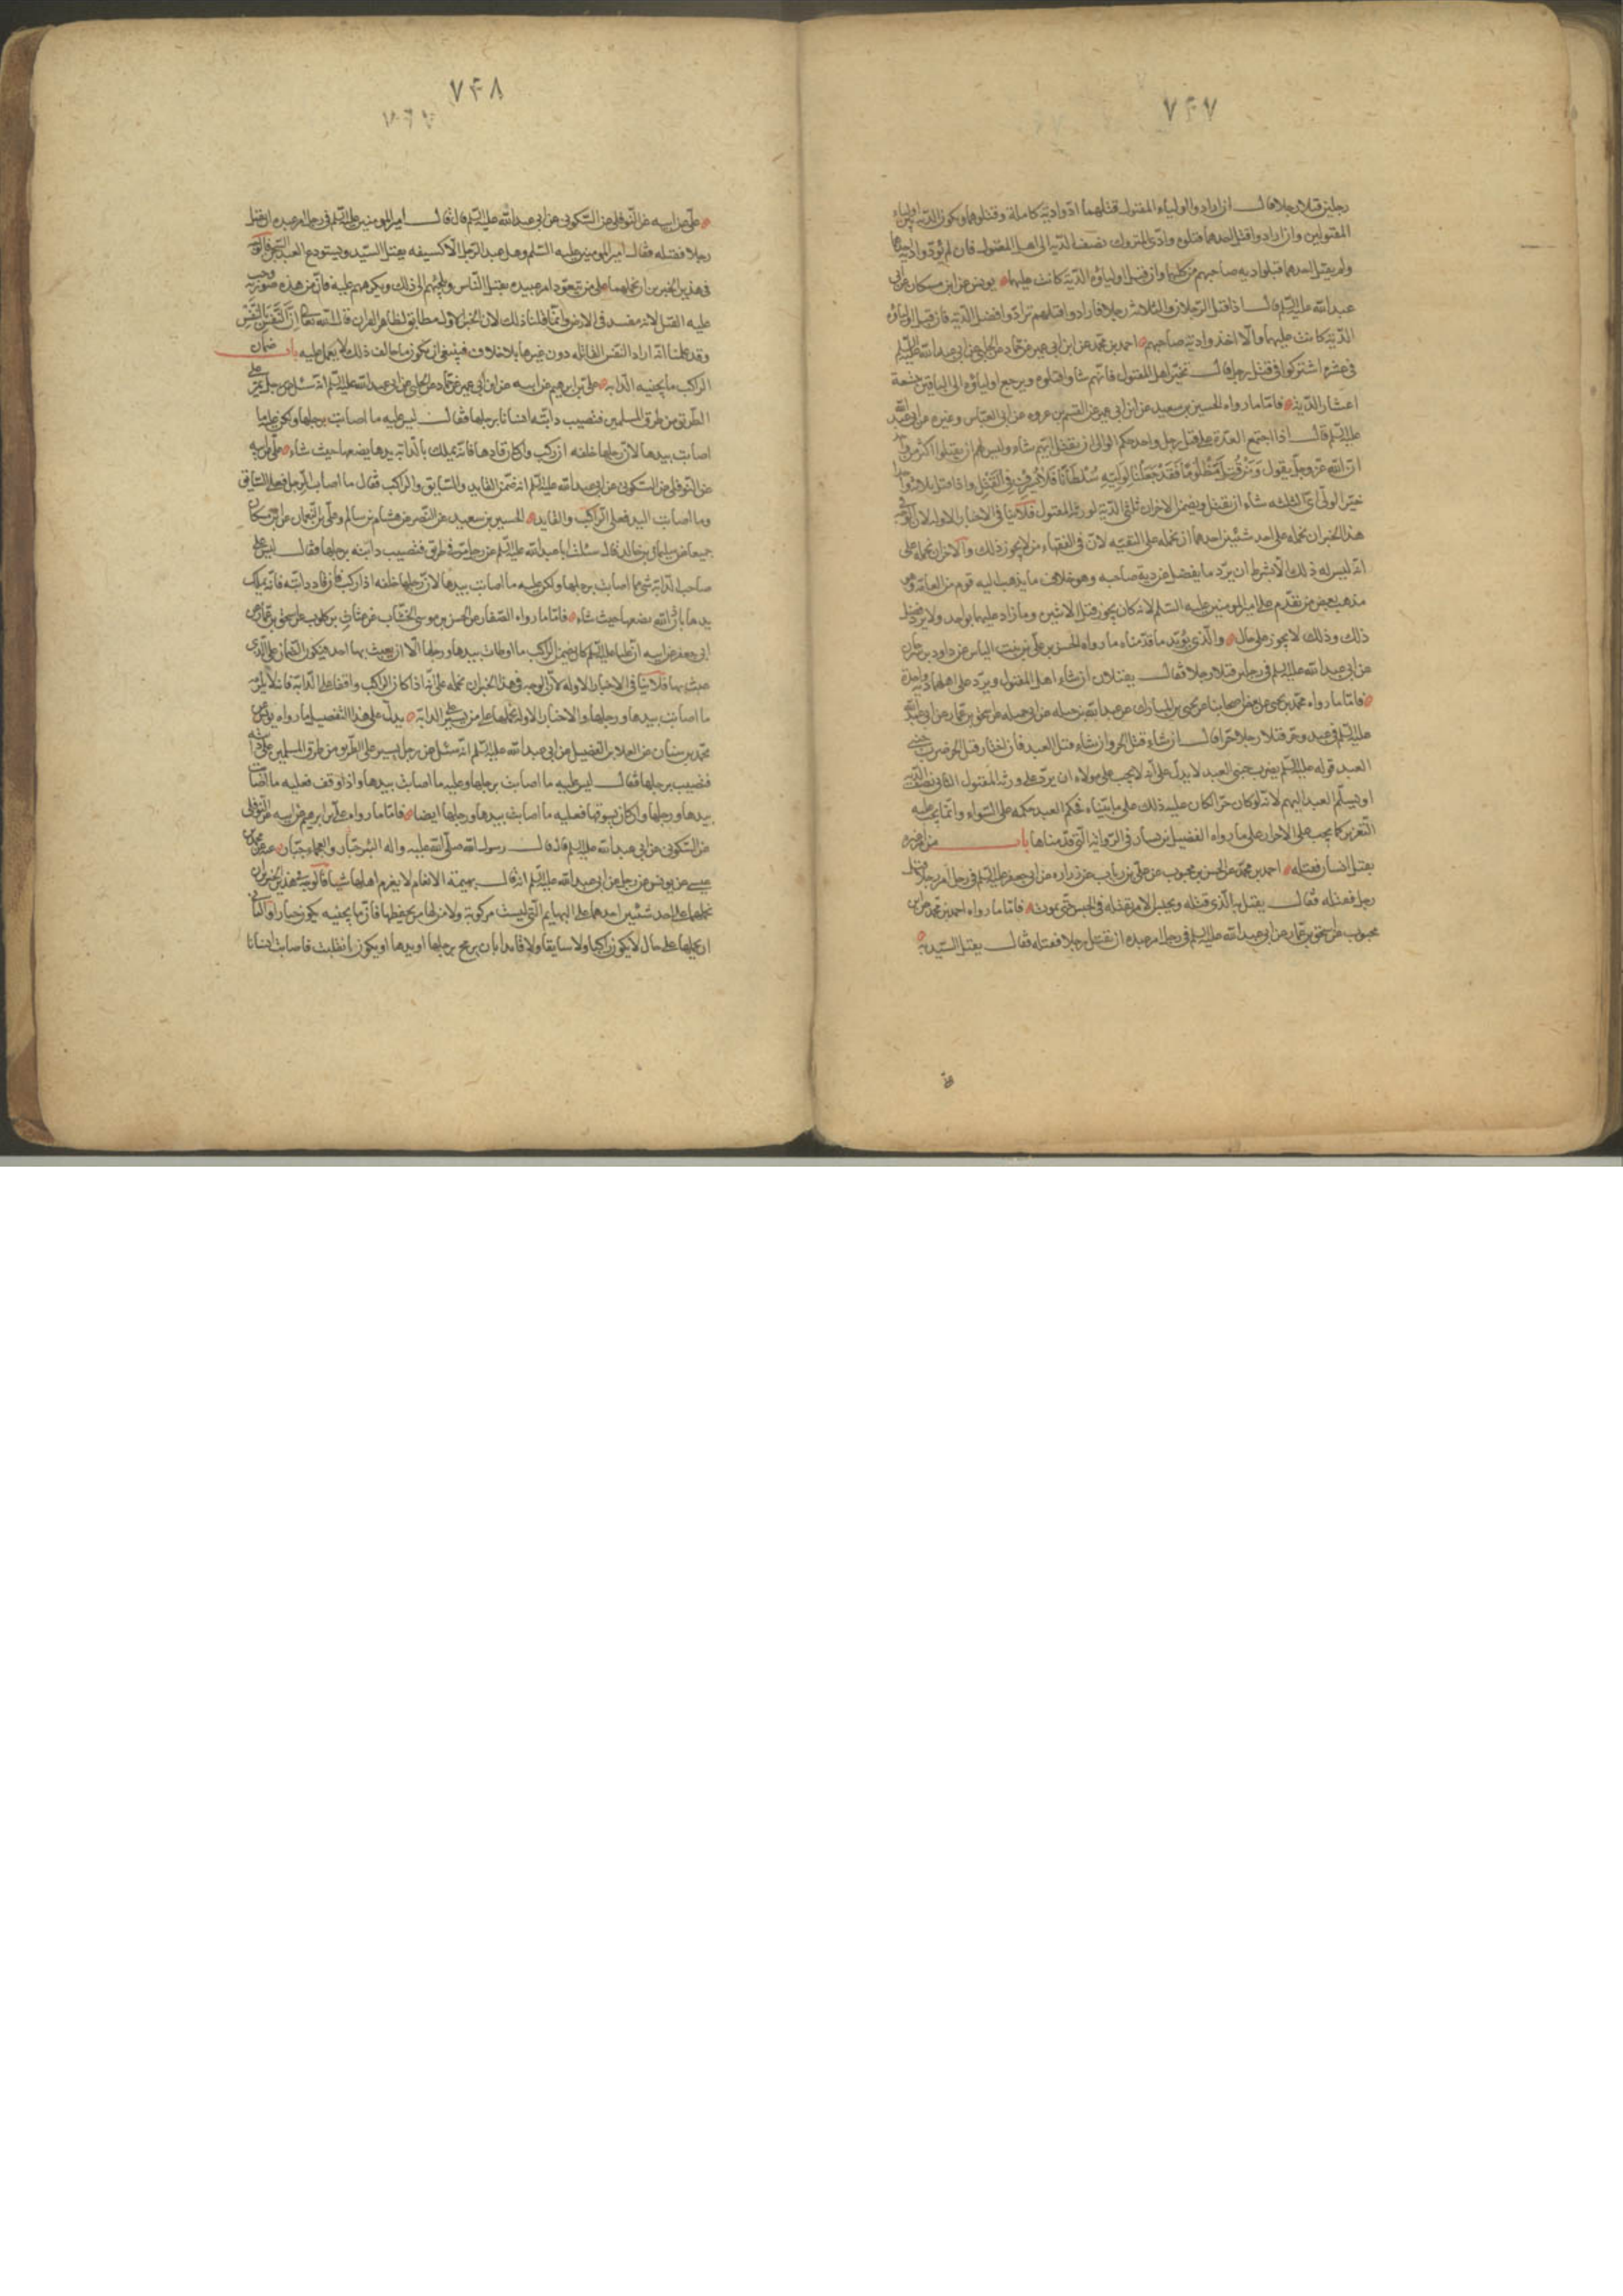 ۷۴۷
رجلين قتلا رجلا قال ان اراد اولياء المقتول قتلهما ادوا دية كاملة وقتلوهما ويكون الدية بين اولياء
المقتولين وان ارادوا قتل احدهما فقتلوه وادى المتروك نصف الدية الى اهل المقتول فان لم يؤدوا دية احدهما
ولم يقتل احدهما قبلوا دية صاحبهم من كليهما وان قبل اولياؤه الدية كانت عليهما يونس عن ابن مسكان عن ابى
عبد الله عليه السلم قال اذا قتل الرجلان والثلاثة رجلا فان ارادوا قتلهم ترادوا فضل الدية فان قبل اولياؤه
الدية كانت عليهما والا اخذوا دية صاحبهم احمد بن محمد عن ابن ابى عمير عن حماد عن الحلبى عن ابى عبد الله عليه السلم
فى عشرة اشتركوا فى قتل رجل قال تخير اهل المقتول فايهم شاوا قتلوه ويرجع اولياؤه الى الباقين بتسعة
اعشار الدية فاما ما رواه الحسين بن سعيد عن ابن ابى عمير عن القسم بن عروه عن ابى العباس وغيره عن ابى عبد الله
عليه السلم قال اذا اجتمع العدة على قتل رجل واحد حكم الوالى ان يقتل ايهم شاء وليس لهم ان يقتلوا اكثر من واحد
ان الله عز وجل يقول وَمَنْ قُتِلَ مَظْلُومًا فَقَدْ جَعَلْنَا لِوَلِيِّهِ سُلْطَانًا فَلَا يُسْرِفْ فِى الْقَتْلِ واذا قتل ثلاثة واحدا
خير الوالى اى الثلثة شاء ان يقتل ويضمن الاخران ثلثى الدية لورثة المقتول فلا ينافى الاخبار الاولة لان الوجه فى
هذا الخبر ان نحمله على احد شيئين احدهما ان نحمله على التقيه لان فى الفقهاء من لا يجوز ذلك والاخر ان نحمله على
انه ليس له ذلك الا بشرط ان يرد ما يفضل عن دية صاحبه وهو خلاف ما يذهب اليه قوم من العامة وهو
مذهب بعض من تقدم على امير المومنين عليه السلم لانه كان يجوز قتل الاثنين وما زاد عليهما بواحد ولا يرد فضل
ذلك وذلك لا يجوز على حال والذى يؤيد ما قدمناه ما رواه الحسن بن على بن بنت الياس عن داود بن سرحان
عن ابى عبد الله عليه السلم فى رجلين قتلا رجلا فقال يقتلان ان شاء اهل المقتول ويرد على اهلهما دية واحدة
فاما ما رواه محمد بن يحيى عن بعض اصحابنا عن يحيى بن المبارك عن عبد الله بن جبله عن ابى جميله عن اسحق بن عمار عن ابى عبد الله
عليه السلم فى عبد وحر قتلا رجلا حرا قال ان شاء قتل الحر وان شاء قتل العبد فان اختار قتل الحر ضرب جنبى
العبد قوله عليه السلم يضرب جنبى العبد لا يدل على انه لا يجب على مولاه ان يرد على ورثة المقتول الثانى نصف الدية
او يسلم العبد اليهم لانه لو كان حرا لكان عليه ذلك على ما بيناه فحكم العبد حكمه على السواء وانما يجب عليه
التعزير كما يجب على الاحرار على ما رواه الفضيل بن يسار فى الرواية التى قدمناها باب من امر غيره
بقتل انسان فقتله احمد بن محمد عن الحسن بن محبوب عن على بن رياب عن زراره عن ابى جعفر عليه السلم فى رجل امر رجلا بقتل
رجل فقتله فقال يقتل به الذى قتله ويحبس الامر بقتله فى الحبس حتى يموت فاما ما رواه احمد بن محمد عن ابن
محبوب عن اسحق بن عمار عن ابى عبد الله عليه السلم فى رجل امر عبده ان يقتل رجلا فقتله فقال يقتل السيد به
۷۴۸
على عن ابيه عن النوفلى عن السكونى عن ابى عبد الله عليه السلم قال قال امير المومنين عليه السلم فى رجل امر عبده ان يقتل
رجلا فقتله فقال امير المومنين عليه السلم وهل عبد الرجل الا كسيفه يقتل السيد ويستودع العبد السجن فالوجه
فى هذين الخبرين ان نحملهما على من تعود امر عبيده بقتل الناس ويلجئهم الى ذلك ويكرههم عليه فان من هذه صورته وجب
عليه القتل لانه مفسد فى الارض وانما قلنا ذلك لان الخبر الاول مطابق لظاهر القران قال الله تعالى اِنَّ النَّفْسَ بِالنَّفْسِ
وقد علمنا انه اراد النفس القاتله دون غيرها بلا خلاف فينبغى ان يكون ما خالف ذلك لا يعمل عليه باب ضمان
الراكب ما يجنيه الدابه على بن ابرهيم عن ابيه عن ابن ابى عمير عن حماد عن الحلبى عن ابى عبد الله عليه السلم انه سئل عن رجل يمر على
الطريق من طرق المسلمين فتصيب دابته انسانا برجلها فقال ليس عليه ما اصابت برجلها ولكن عليه ما
اصابت بيدها لان رجلها خلفه ان ركب وان كان قادها فانه يملك باذن الله يدها يضعها حيث شاء على عن ابيه
عن النوفلى عن السكونى عن ابى عبد الله عليه السلم انه ضمن القايد والسايق والراكب فقال ما اصاب الرجل فعلى السايق
وما اصابت اليد فعلى الراكب والقايد الحسين بن سعيد عن النضر عن هشام بن سالم وعلى بن النعمان عن ابن مسكان
جميعا عن سليمان بن خالد قال سئلت ابا عبد الله عليه السلم عن رجل مر فى طريق فتصيب دابته برجلها فقال ليس على
صاحب الدابة شئ مما اصابت برجلها ولكن عليه ما اصابت بيدها لان رجلها خلفه اذا ركب فان قاد دابته فانه يملك
يدها باذن الله يضعها حيث شاء فاما ما رواه الصفار عن الحسن بن موسى الخشاب عن غياث بن كلوب عن اسحق بن عمار عن
ابى جعفر عن ابيه ان عليا عليه السلم كان يضمن الراكب ما اوطات بيدها ورجلها الا ان يعبث بها احد فيكون الضمان على الذى
عبث بها فلا ينافى الاخبار الاولة لان الوجه فى هذا الخبر ان نحمله على انه اذا كان الراكب واقفا على الدابة فانه يلزمه
ما اصابت بيدها ورجلها والاخبار الاولة نحملها على من يسير على الدابة يدل على هذا التفصيل ما رواه يونس عن
محمد بن سنان عن العلا بن الفضيل عن ابى عبد الله عليه السلم انه سئل عن رجل يسير على الطريق من طرق المسلمين على دابته
فتصيب برجلها فقال ليس عليه ما اصابت برجلها وعليه ما اصابت بيدها واذا وقف فعليه ما اصابت
بيدها ورجلها وان كان يسوقها فعليه ما اصابت بيدها ورجلها ايضا فاما ما رواه على بن ابرهيم عن ابيه عن النوفلى
عن السكونى عن ابى عبد الله عليه السلم قال قال رسول الله صلى الله عليه واله البئر جبار والعجماء جبار عنه عن محمد بن
عيسى عن يونس عن رجل عن ابى عبد الله عليه السلم انه قال بهيمة الانعام لا يغرم اهلها شيئا فالوجه فى هذين الخبرين ان
نحملهما على احد شيئين احدهما على البهايم التى ليست مركوبة ولا من لها من يحفظها فان ما يجنيه يكون جبارا والثانى
ان نحملها على حال لا يكون راكبا ولا سايقا ولا قايدا بان يرمح برجلها او بيدها او يكون انفلتت فاصابت انسانا